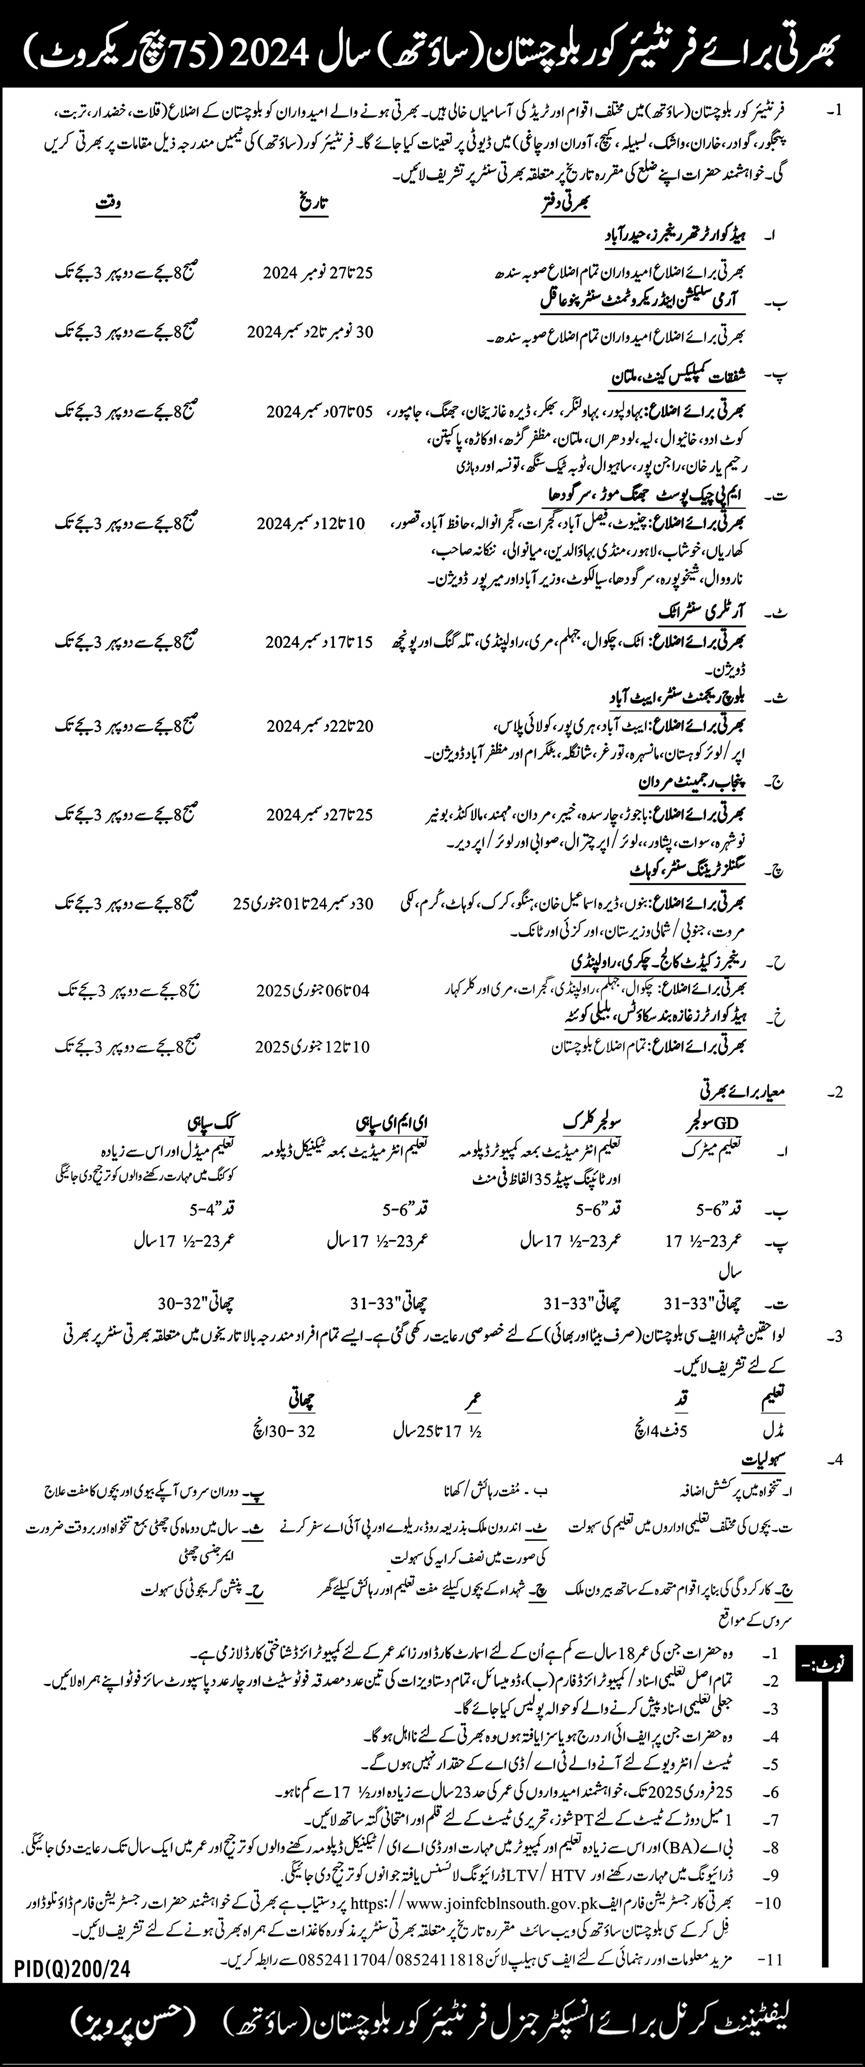 بھرتی برائے فرنٹیئر کور بلوچستان (ساؤتھ) سال 2024 (75 بیچ ریکروٹ)
1- فرنٹیئر کور بلوچستان (ساؤتھ) میں مختلف اقوام اور ٹریڈ کی آسامیاں خالی ہیں۔ بھرتی ہونے والے امیدواران کو بلوچستان کے اضلاع (قلات، خضدار، تربت،
پنجگور، گوادر، خاران، واشک، لسبیلہ، کیچ، آوران اور چاغی) میں ڈیوٹی پر تعینات کیا جائے گا۔ فرنٹیئر کور (ساؤتھ) کی ٹیمیں مندرجہ ذیل مقامات پر بھرتی کریں
گی۔ خواہشمند حضرات اپنے ضلع کی مقررہ تاریخ پر متعلقہ بھرتی سنٹر پر تشریف لائیں۔
بھرتی دفتر تاریخ وقت
ا۔ ہیڈ کوارٹر تھر رینجرز، حیدر آباد
بھرتی برائے اضلاع امیدواران تمام اضلاع صوبہ سندھ 25 تا 27 نومبر 2024 صبح 8 بجے سے دوپہر 3 بجے تک
ب۔ آرمی سلیکشن اینڈ ریکروٹمنٹ سنٹر پنو عاقل
بھرتی برائے اضلاع امیدواران تمام اضلاع صوبہ سندھ۔ 30 نومبر تا 2 دسمبر 2024 صبح 8 بجے سے دوپہر 3 بجے تک
پ۔ شفقات کمپلیکس کینٹ، ملتان
بھرتی برائے اضلاع: بہاولپور، بہاولنگر، بھکر، ڈیرہ غازیخان، جھنگ، جامپور، 05 تا 07 دسمبر 2024 صبح 8 بجے سے دوپہر 3 بجے تک
کوٹ ادو، خانیوال، لیہ، لودھراں، ملتان، مظفر گڑھ، اوکاڑہ، پاکپتن،
رحیم یار خان، راجن پور، ساہیوال، ٹوبہ ٹیک سنگھ، تونسہ اور وہاڑی
ت۔ ایم پی چیک پوسٹ جھنگ موڑ، سرگودھا
بھرتی برائے اضلاع: چنیوٹ، فیصل آباد، گجرات، گجرانوالہ، حافظ آباد، قصور، 10 تا 12 دسمبر 2024 صبح 8 بجے سے دوپہر 3 بجے تک
کھاریاں، خوشاب، لاہور، منڈی بہاؤالدین، میانوالی، ننکانہ صاحب،
نارووال، شیخوپورہ، سرگودھا، سیالکوٹ، وزیر آباد اور میر پور ڈویژن۔
ٹ۔ آرٹلری سنٹر اٹک
بھرتی برائے اضلاع: اٹک، چکوال، جہلم، مری، راولپنڈی، تلہ گنگ اور پونچھ 15 تا 17 دسمبر 2024 صبح 8 بجے سے دوپہر 3 بجے تک
ڈویژن۔
ث۔ بلوچ ریجمنٹ سنٹر، ایبٹ آباد
بھرتی برائے اضلاع: ایبٹ آباد، ہری پور، کولائی پلاس، 20 تا 22 دسمبر 2024 صبح 8 بجے سے دوپہر 3 بجے تک
اپر/لوئر کوہستان، مانسہرہ، تورغر، شانگلہ، بٹگرام اور مظفر آباد ڈویژن۔
ج۔ پنجاب رجمینٹ مردان
بھرتی برائے اضلاع: باجوڑ، چارسدہ، خیبر، مردان، مہمند، مالاکنڈ، بونیر 25 تا 27 دسمبر 2024 صبح 8 بجے سے دوپہر 3 بجے تک
نوشہرہ، سوات، پشاور، لوئر/اپر چترال، صوابی اور لوئر/اپر دیر۔
چ۔ سگنلز ٹریننگ سنٹر، کوہاٹ
بھرتی برائے اضلاع: بنوں، ڈیرہ اسماعیل خان، ہنگو، کرک، کوہاٹ، کُرم، لکی 30 دسمبر 24 تا 01 جنوری 25 صبح 8 بجے سے دوپہر 3 بجے تک
مروت، جنوبی/شمالی وزیرستان، اورکزئی اور ٹانک۔
ح۔ رینجرز کیڈٹ کالج۔ چکری، راولپنڈی
بھرتی برائے اضلاع: چکوال، جہلم، راولپنڈی، گجرات، مری اور کلر کہار 04 تا 06 جنوری 2025 بج 8 بجے سے دوپہر 3 بجے تک
خ۔ ہیڈ کوارٹرز غازہ بند سکاؤٹس، بلیلی کوئٹہ
بھرتی برائے اضلاع: تمام اضلاع بلوچستان 10 تا 12 جنوری 2025 صبح 8 بجے سے دوپہر 3 بجے تک
2- معیار برائے بھرتی
GD سولجر سولجر کلرک ای ایم ای سپاہی کک سپاہی
ا۔ تعلیم میٹرک تعلیم انٹرمیڈیٹ بمعہ کمپیوٹر ڈپلومہ تعلیم انٹرمیڈیٹ بمعہ ٹیکنیکل ڈپلومہ تعلیم میڈل اور اس سے زیادہ
اور ٹائپنگ سپیڈ 35 الفاظ فی منٹ کوکنگ میں مہارت رکھنے والوں کو ترجیح دی جائیگی
ب۔ قد "6-5 قد "6-5 قد "6-5 قد "4-5
پ۔ عمر 23-½ 17 عمر 23-½ 17 سال عمر 23-½ 17 سال عمر 23-½ 17 سال
سال
ت۔ چھاتی "33-31 چھاتی "33-31 چھاتی "33-31 چھاتی "32-30
3- لواحقین شہدا ایف سی بلوچستان (صرف بیٹا اور بھائی) کے لئے خصوصی رعایت رکھی گئی ہے۔ ایسے تمام افراد مندرجہ بالا تاریخوں میں متعلقہ بھرتی سنٹر پر بھرتی
کے لئے تشریف لائیں۔
تعلیم قد عمر چھاتی
مڈل 5 فٹ 4 انچ ½ 17 تا 25 سال 32-30 انچ
4- سہولیات
ا۔ تنخواہ میں پرکشش اضافہ ب۔ مُفت رہائش/کھانا پ۔ دوران سروس آپکے بیوی اور بچوں کا مفت علاج
ت۔ بچوں کی مختلف تعلیمی اداروں میں تعلیم کی سہولت ٹ۔ اندرون ملک بذریعہ روڈ، ریلوے اور پی آئی اے سفر کرنے ث۔ سال میں دو ماہ کی چھٹی بمع تنخواہ اور بروقت ضرورت
کی صورت میں نصف کرایہ کی سہولت ایمرجنسی چھٹی
ج۔ کارکردگی کی بنا پر اقوام متحدہ کے ساتھ بیرون ملک چ۔ شہداء کے بچوں کیلئے مفت تعلیم اور رہائش کیلئے گھر ح۔ پنشن گریجوٹی کی سہولت
سروس کے مواقع
نوٹ:-
1- وہ حضرات جن کی عمر 18 سال سے کم ہے اُن کے لئے اسمارٹ کارڈ اور زائد عمر کے لئے کمپیوٹرائزڈ شناختی کارڈ لازمی ہے۔
2- تمام اصل تعلیمی اسناد/کمپیوٹرائزڈ فارم (ب)، ڈومیسائل، تمام دستاویزات کی تین عدد مصدقہ فوٹو سٹیٹ اور چار عدد پاسپورٹ سائز فوٹو اپنے ہمراہ لائیں۔
3- جعلی تعلیمی اسناد پیش کرنے والے کو حوالہ پولیس کیا جائے گا۔
4- وہ حضرات جن پر ایف آئی ار درج ہو یا سزا یافتہ ہوں وہ بھرتی کے لئے نااہل ہو گا۔
5- ٹیسٹ/انٹرویو کے لئے آنے والے ٹی اے/ڈی اے کے حقدار نہیں ہوں گے۔
6- 25 فروری 2025 تک، خواہشمند امیدواروں کی عمر کی حد 23 سال سے زیادہ اور ½ 17 سے کم نا ہو۔
7- 1 میل دوڑ کے ٹیسٹ کے لئے PT شوز، تحریری ٹیسٹ کے لئے قلم اور امتحانی گتہ ساتھ لائیں۔
8- بی اے (BA) اور اس سے زیادہ تعلیم اور کمپیوٹر میں مہارت اور ڈی اے ای/ٹیکنیکل ڈپلومہ رکھنے والوں کو ترجیح اور عمر میں ایک سال تک رعایت دی جائیگی.
9- ڈرائیونگ میں مہارت رکھنے اور LTV/ HTV ڈرائیونگ لائسنس یافتہ جوانوں کو ترجیح دی جائیگی.
10- بھرتی کا رجسٹریشن فارم ایف https://www.joinfcblnsouth.gov.pk پر دستیاب ہے بھرتی کے خواہشمند حضرات رجسٹریشن فارم ڈاؤنلوڈ اور
فِل کر کے سی بلوچستان ساؤتھ کی ویب سائٹ مقررہ تاریخ پر متعلقہ بھرتی سنٹر پر مذکورہ کاغذات کے ہمراہ بھرتی ہونے کے لئے تشریف لائیں۔
11- مزید معلومات اور رہنمائی کے لئے ایف سی ہیلپ لائن 0852411818/0852411704 سے رابطہ کریں۔
PID(Q)200/24
لیفٹیننٹ کرنل برائے انسپکٹر جنرل فرنٹیئر کور بلوچستان (ساؤتھ) (حسن پرویز)